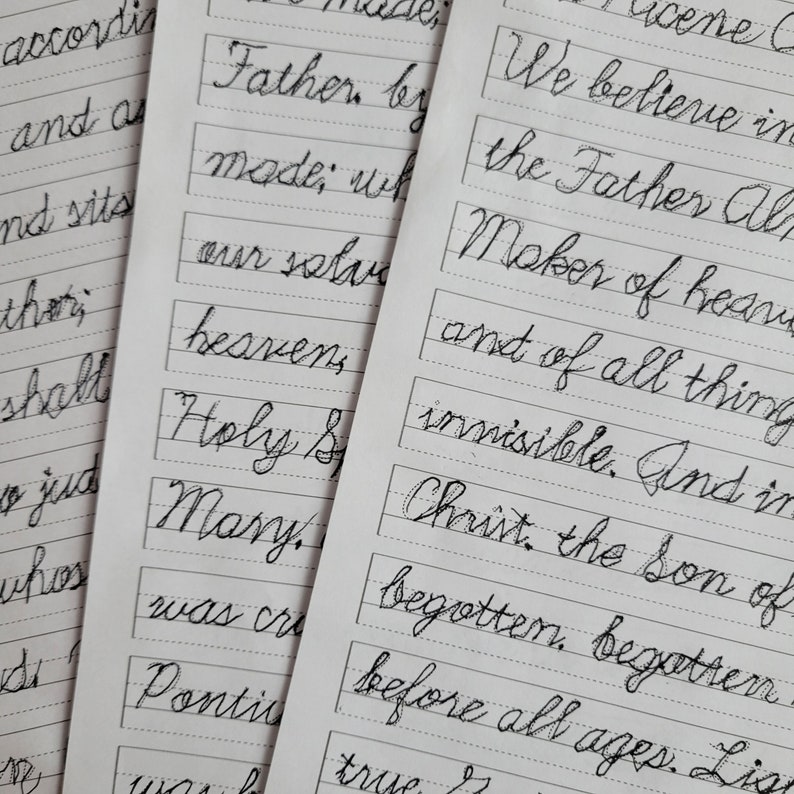 accordin
and as
nd sits
ther;
shall
jud
whos
made;
Father. by
made; wh
our salva
heaven,
Holy S
Mary.
was cru
Pontiu
was
Nicene C
We believe in
the Father Al
Maker of heave
and of all thing
invisible. And in
Christ. the son of
begotten. begotten
before all ages. Lig
true G